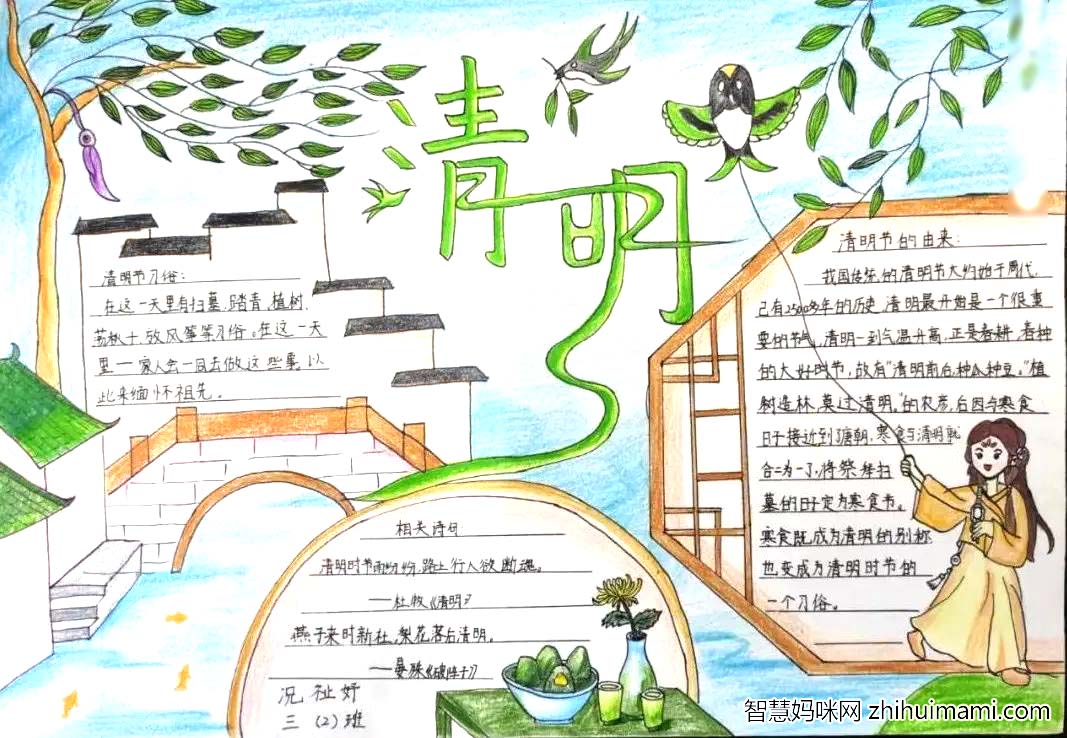 清明
清明节习俗：
在这一天里有扫墓，踏青，植树，
荡秋千，放风筝等习俗。在这一天
里一家人会一同去做这些事，以
此来缅怀祖先。
清明节的由来：
我国传统的清明节大约始于周代，
已有2500多年的历史，清明最开始是一个很重
要的节气，清明一到气温升高，正是春耕，春种
的大好时节，故有“清明前后，种瓜种豆。”植
树造林，莫过清明。”的农彦，后因与寒食
日子接近到唐朝，寒食与清明就
合二为一了，将祭拜扫
墓的日子定为寒食节。
寒食既成为清明的别称
也变成为清明时节的
一个习俗。
相关诗句：
清明时节雨纷纷，路上行人欲断魂。
——杜牧《清明》
燕子来时新社，梨花落后清明。
——晏殊《破阵子》
况祉妤
三（2）班
智慧妈咪网 zhihuimami.com